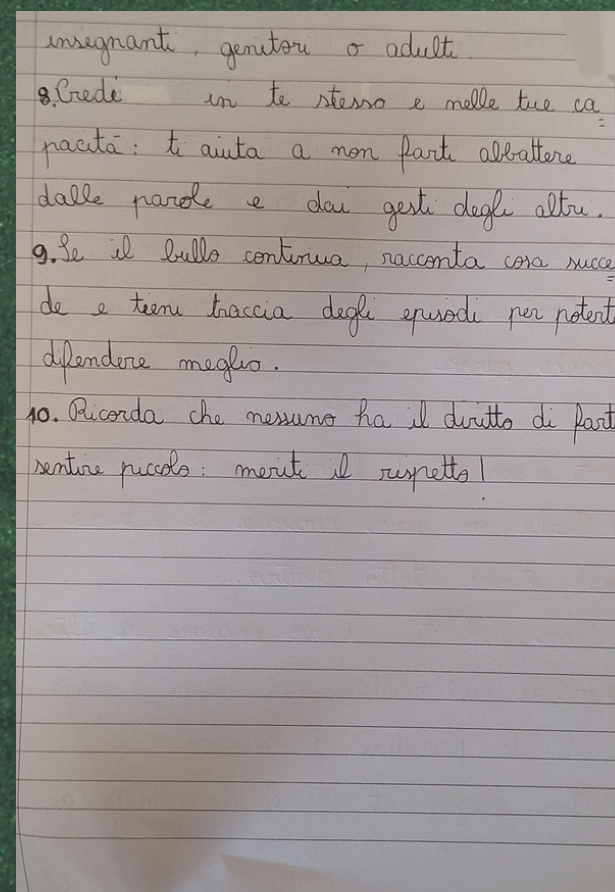 insegnanti, genitori o adulti.
8. Credi in te stesso e nelle tue ca=
pacità: ti aiuta a non farti abbattere
dalle parole e dai gesti degli altri.
9. Se il bullo continua, racconta cosa succe=
de e tieni traccia degli episodi per poterti
difendere meglio.
10. Ricorda che nessuno ha il diritto di farti
sentire piccolo: meriti il rispetto!